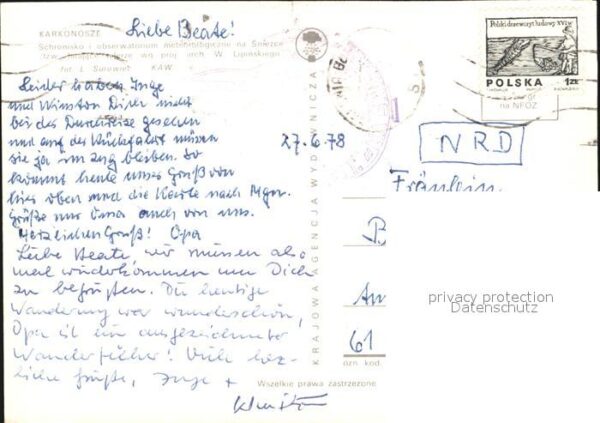 Liebe Beate!
KARKONOSZE
Schronisko i obserwatorium meteorologiczne na Śnieżce
wg proj. arch. W. Lipińskiego
fot. J. Surowiec KAW
Leider haben Inge
und Winston Dich nicht
bei der Durchreise gesehen
und auf der Rückfahrt müssen
sie ja im Zug bleiben. So
kommt heute unser Gruß von
hier oben und die Karte nach
Grüße nur Oma auch von uns.
Herzlichen Gruß! Opa
Liebe Beate, wir müssen also
mal wiederkommen um Dich
zu begrüßen. Die heutige
Wanderung war wunderschön,
Opa ist ein ausgezeichneter
Wanderführer! Viele herz-
liche Grüße, Inge +
27.6.78
KRAJOWA AGENCJA WYDAWNICZA
Polski drzeworyt ludowy XVI w.
POLSKA 1 ZŁ
na NFOZ
NRD
Fräulein
B
An
61
ozn. kod.
Wszelkie prawa zastrzeżone
privacy protection
Datenschutz